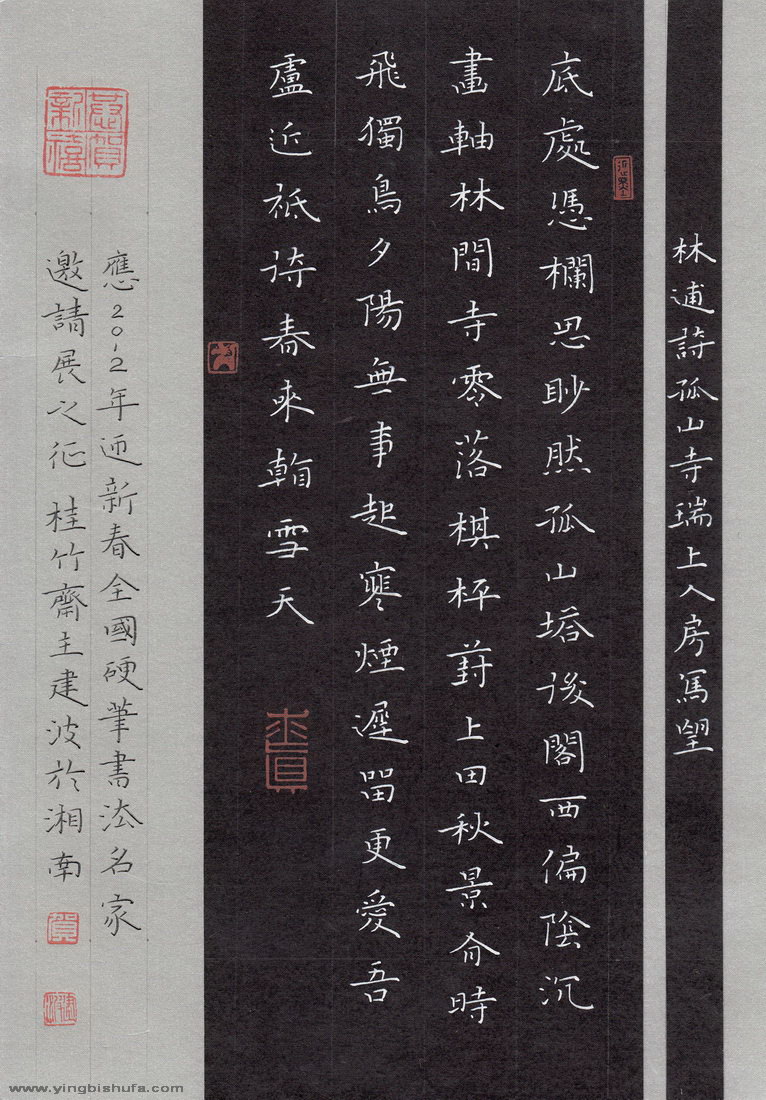 林逋詩孤山寺瑞上人房寫望
底處憑欄思眇然孤山塔後閣西偏陰沉
畫軸林間寺零落棋枰葑上田秋景有時
飛獨鳥夕陽無事起寒煙遲留更愛吾
盧近祗待春來看雪天
應2012年迎新春全國硬筆書法名家
邀請展之征 桂竹齋主建波於湘南
恭賀新禧
www.yingbishufa.com